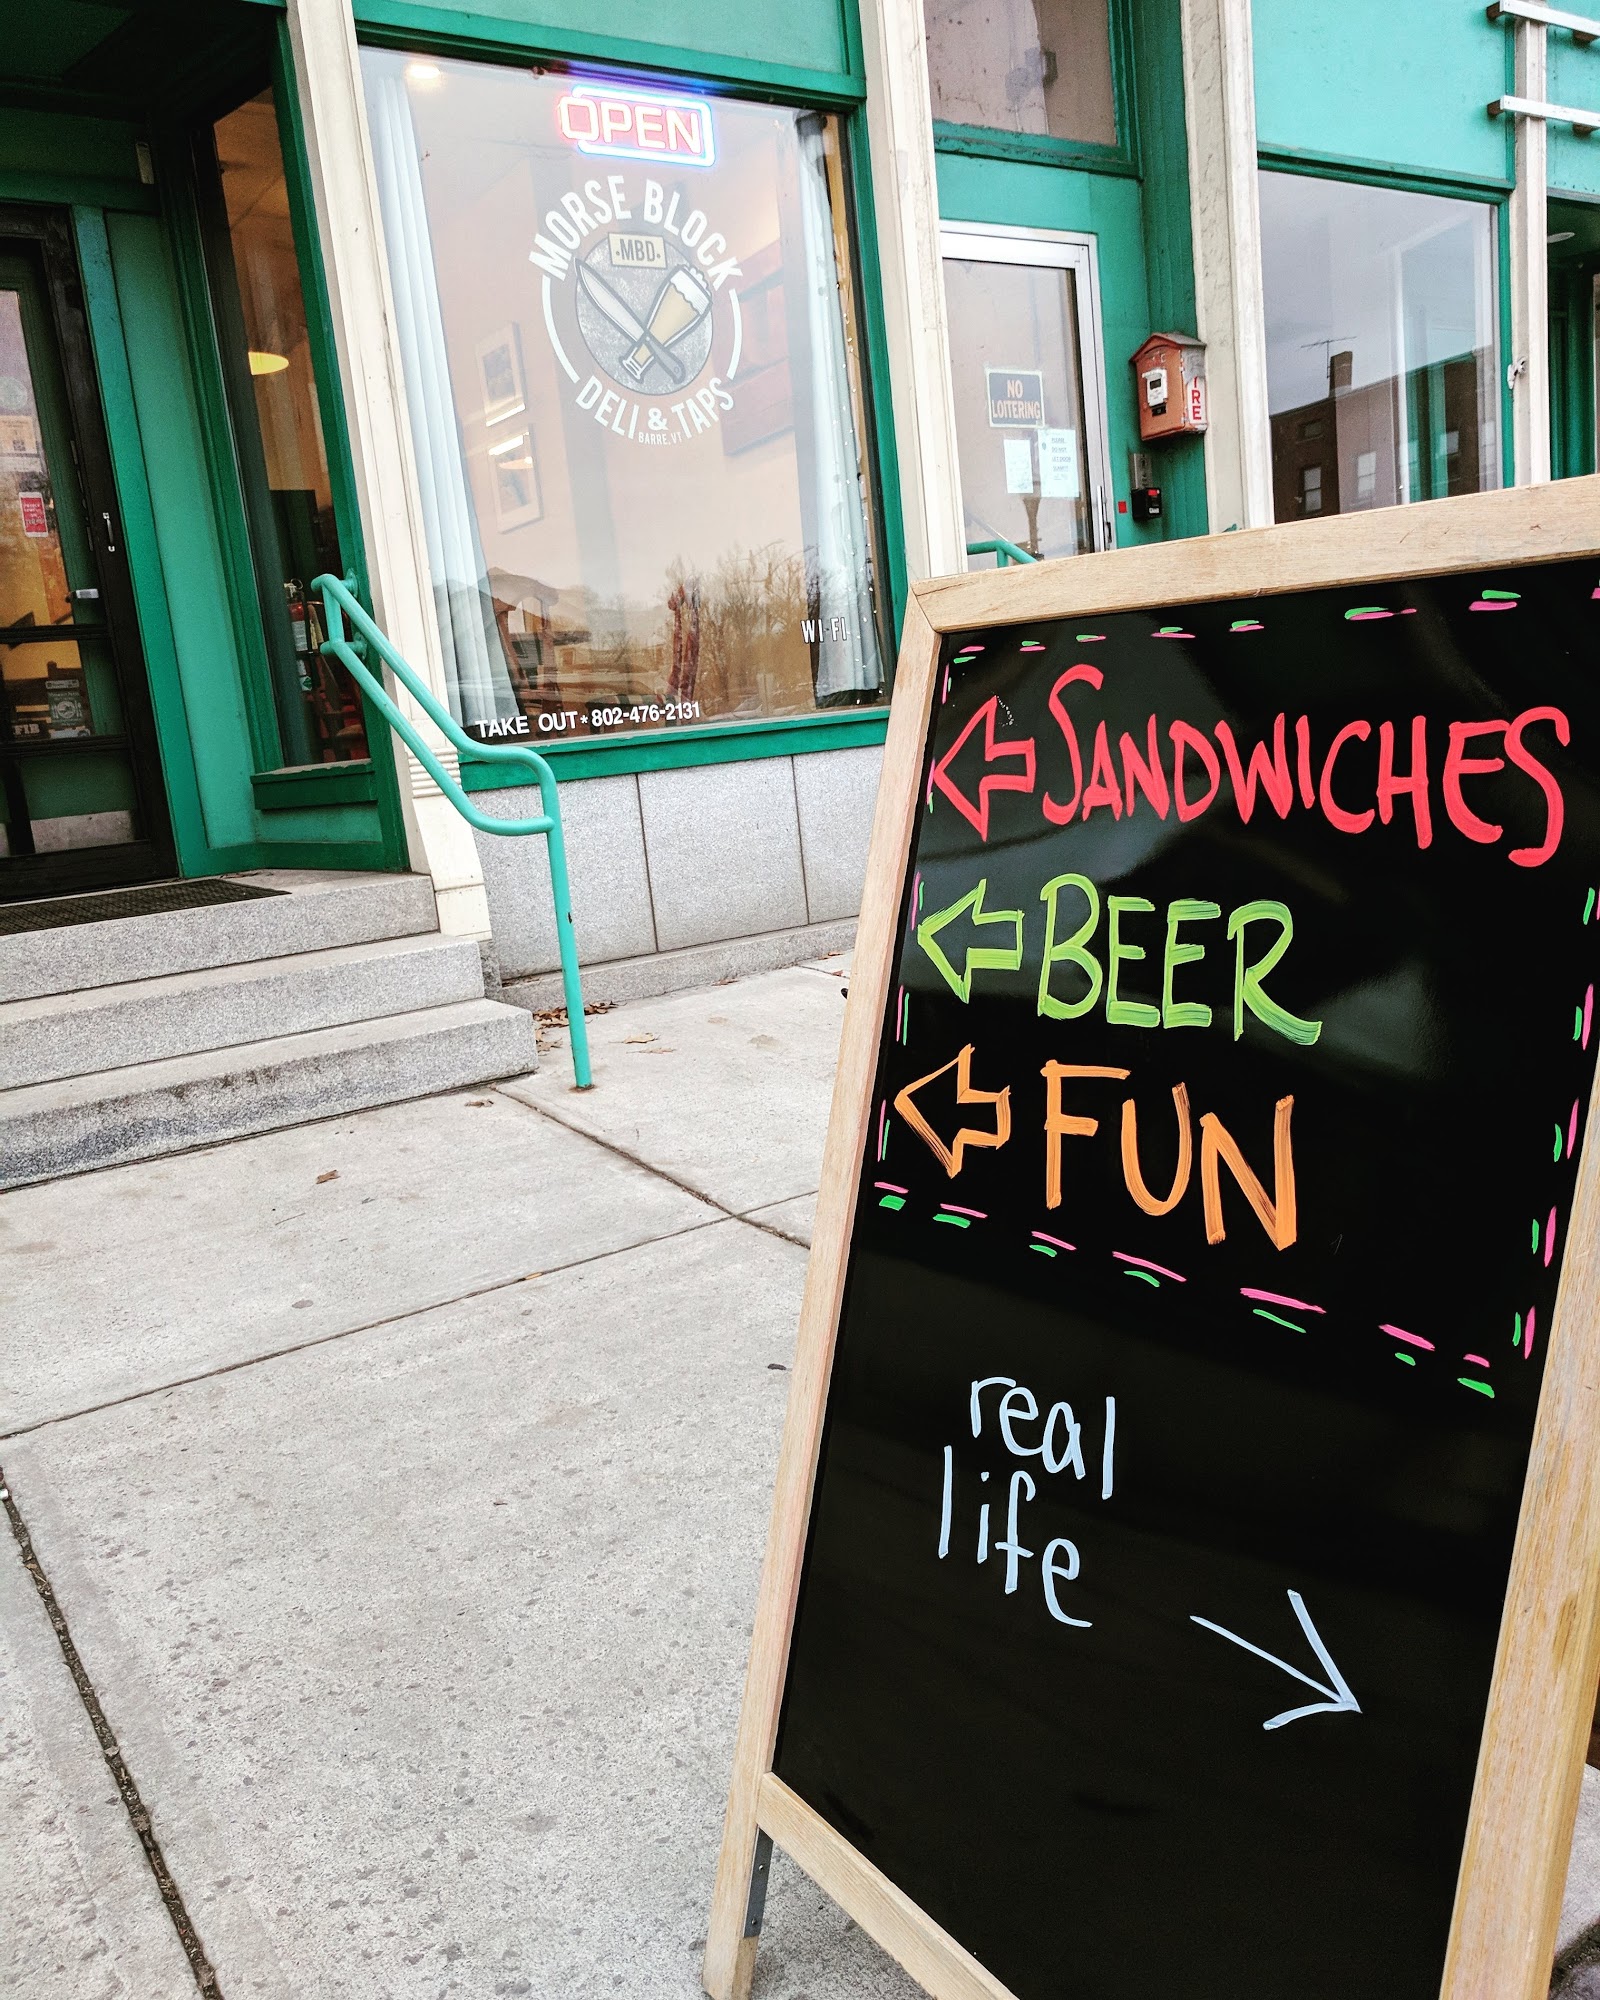 OPEN
MORSE BLOCK
·MBD·
DELI & TAPS
BARRE, VT
WI-FI
TAKE OUT * 802-476-2131
NO
LOITERING
FIRE
FIB
SANDWICHES
BEER
FUN
real
life